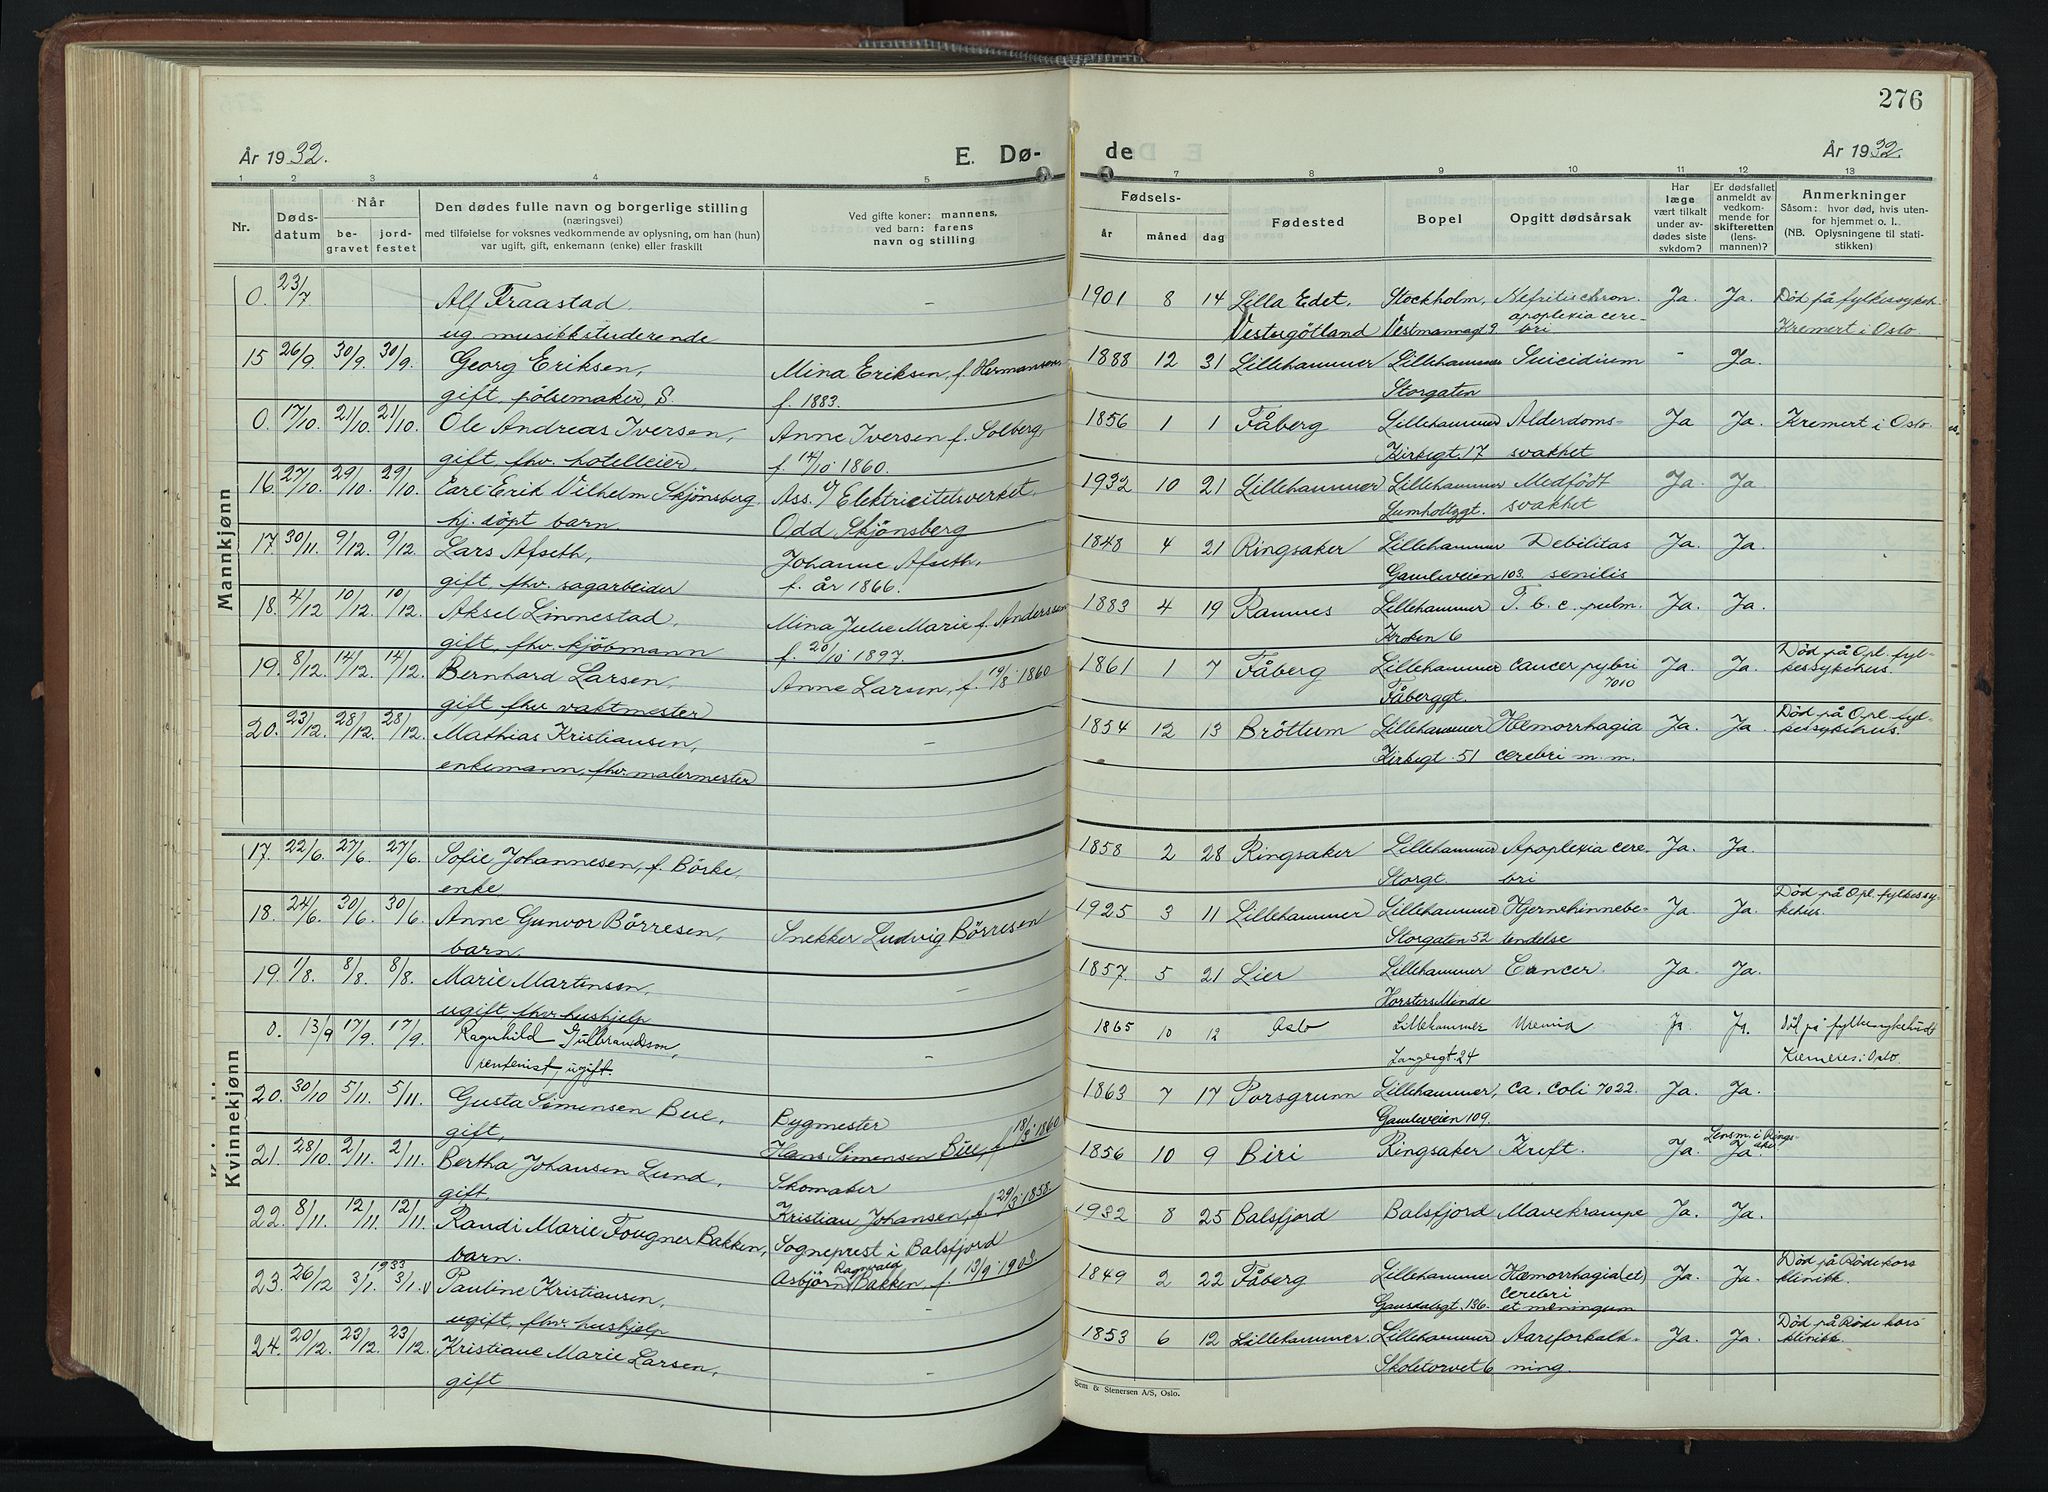 276
År 1932.
E. Dø-
de
År 1932.
1 2 3 4 5 7 8 9 10 11 12 13
Nr.
Døds-
datum
Når
be-
gravet
jord-
festet
Den dødes fulle navn og borgerlige stilling
(næringsvei)
med tilføielse for voksnes vedkommende av oplysning, om han (hun)
var ugift, gift, enkemann (enke) eller fraskilt
Ved gifte koner: mannens,
ved barn: farens
navn og stilling
Fødsels-
år måned dag
Fødested
Bopel
Opgitt dødsårsak
Har
læge
vært tilkalt
under av-
dødes siste
sykdom?
Er dødsfallet
anmeldt av
vedkom-
mende for
skifteretten
(lens-
mannen)?
Anmerkninger
Såsom: hvor død, hvis uten-
for hjemmet o. l.
(NB. Oplysningene til stati-
stikken)
Mannkjønn
0. 23/7 Alf Fraastad - 1901 8 14 Lilla Edet, Stockholm, Nefritis chron. Ja. Ja. Død på fylkessykeh.
ug musikkstuderende Vestergötland Vestmannagt 9 apoplexia cere-
bri Kremert i Oslo
15 26/9. 30/9. 30/9. Georg Eriksen, Mina Eriksen, f. Hermansen, 1888 12 31 Lillehammer Lillehammer Suicidium - Ja.
gift, pølsemaker, S. f. 1883. Storgaten
0. 17/10. 21/10. 21/10. Ole Andreas Iversen, Anne Iversen f. Solberg, 1856 1 1 Fåberg Lillehammer Alderdoms- Ja Ja. Kremert i Oslo.
gift, fhv. hotelleier. f. 14/10 1860. Kirkegt. 17 svakhet
16. 27/10 29/10. 29/10. Carl Erik Vilhelm Skjønsberg, Ass. v/ Elektricitetsverket, 1932 10 21 Lillehammer Lillehammer Medfödt Ja. Ja.
hj. döpt barn Odd Skjönsberg Lumholtzgt. svakhet
17. 30/11. 9/12. 9/12. Lars Afseth, Johanne Afseth, 1848 4 21 Ringsaker Lillehammer Debilitas Ja. Ja.
gift, fhv. sagarbeider f. år 1866. Gamleveien 103. senilis
18. 4/12 10/12. 10/12. Aksel Linnestad, Mina Julie Marie f. Anderssen 1883 4 19 Ramnes Lillehammer T. b. c. pulm. Ja. Ja.
gift, fhv. kjöbmann f. 20/10 1897. Kroken 6
19. 8/12. 14/12. 14/12. Bernhard Larsen, Anne Larsen, f. 19/8 1860 1861 1 7 Fåberg Lillehammer Cancer pylori Ja. Ja. Død på Opl. fyl-
gift fhv vaktmester Fåberggt. 7010 kessykehus.
20. 23/12. 28/12. 28/12. Mathias Kristiansen, - 1854 12 13 Bröttum Lillehammer Hæmorrhagia Ja. Ja. Død på Opl. fyl-
enkemann, fhv. malermester Kirkegt. 51 cerebri m. m. kessykehus.
Kvinnekjønn
17. 22/6. 27/6. 27/6. Sofie Johannesen, f. Börke, 1858 2 28 Ringsaker Lillehammer Apoplexia cere- Ja. Ja.
enke, Storgt. bri
18. 24/6. 30/6. 30/6. Anne Gunvor Börresen, Snekker Ludvig Börresen 1925 3 11 Lillehammer Lillehammer Hjernehinnebe- Ja. Ja. Død på Opl. fylkessy-
barn. Storgaten 52 tendelse kehus.
19. 1/8. 8/8. 8/8. Marie Martensen, - 1857. 5 21 Lier Lillehammer Cancer. Ja. Ja.
ugift, fhv. hushjelp Horsters Minde
0. 13/9 17/9. 17/9. Ragnhild Gulbrandson, - 1865 10 12 Oslo Lillehammer Uremia Ja Ja. Død på fylkesykehuset
rentenist, ugift. Langesgt. 24 Kremeres i Oslo.
20. 30/10 5/11. 5/11. Gusta Simensen Bue, Bygmester 1863 7 17 Porsgrunn Lillehammer, Ca. Coli 7022. Ja. Ja.
gift, Hans Simensen Bue, f. 18/3 1860 Gamleveien 109.
21. 28/10. 2/11. 2/11. Bertha Johansen Lund, Skomaker 1856 10 9 Biri Ringsaker Kreft. Ja. Lensm. i Rings-
aker Ja
gift, Kristian Johansen, f. 29/3 1858
22. 8/11. 12/11. 12/11. Randi Marie Fougner Bakken, Sogneprest i Balsfjord 1932 8 25 Balsfjord Balsfjord Mavekrampe Ja. Ja.
barn. Asbjörn Ragnvald Bakken, f. 13/9 1903.
1933
23. 26/12 3/1. 3/1. v Pauline Kristiansen, - 1849 2 22 Fåberg Lillehammer Hæmorrhagia (et) Ja. Ja. Død på Røde kors
ugift, fhv. hushjelp Gausdalsgt. 136. cerebri
et meningum klinikk.
24. 20/12. 23/12. 23/12. Kristiane Marie Larsen, - 1853 6 12 Lillehammer. Lillehammer Aareforkalk- Ja. Ja. Død på Røde kors
gift Skoletorvet 6 ning. klinikk.
Sem & Stenersen A/S, Oslo.